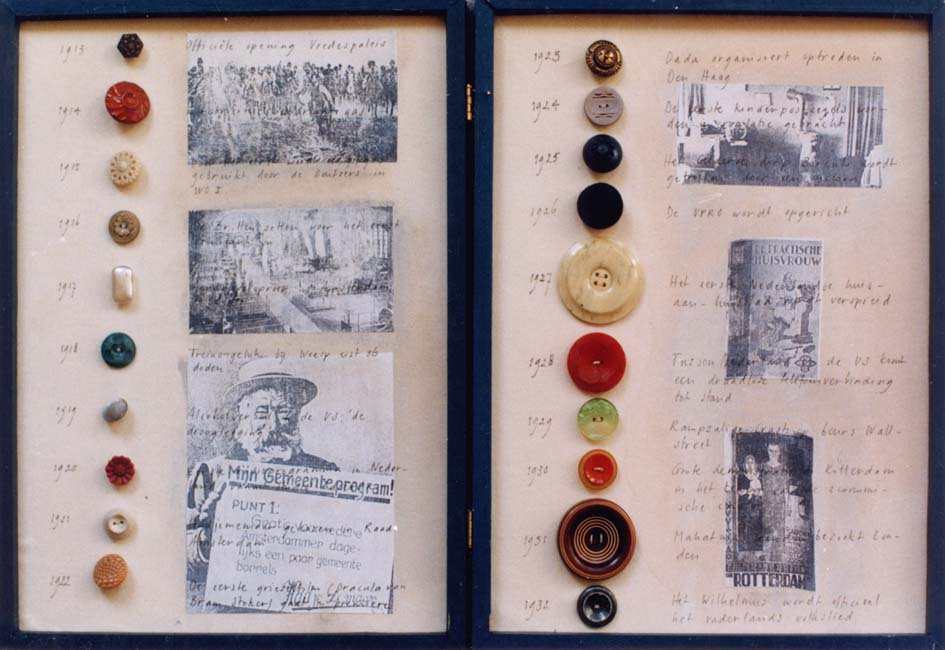 1913
Officiële opening Vredespaleis
1914
1915
gebruikt door de Duitsers in
WO I
1916
De Br. Hen zetten voor het eerst
1917
1918
Treinongeluk bij Weesp eist 36
doden
1919
de VS; 'de
drooglegging'
1920
in Neder-
Mijn Gemeenteprogram!
PUNT 1:
Gratis voor iedere
Amsterdammer dage-
lijks een paar gemeente
borrels
1921
Raad
Amsterdam
1922
De eerste griezelfilm (Dracula van
Bram Stoker) gaat in première
1923
Dada organiseert optreden in
Den Haag
1924
De eerste kinderpostzegels wor-
den in circulatie gebracht
1925
Het Gelderse dorp Borculo wordt
getroffen door een
1926
De VPRO wordt opgericht
DE PRACTISCHE
HUISVROUW
1927
Het eerste Nederlandse huis-
aan-huisblad wordt verspreid
1928
Tussen Nederland en de VS komt
een draadloze telefoonverbinding
tot stand
1929
Rampzalige crash beurs Wall-
street
1930
Grote demonstratie in Rotterdam
in het
sche
1931
bezoekt Lon-
den
SEPTEMBER
ROTTERDAM
1932
Het Wilhelmus wordt officieel
het vaderlands volkslied